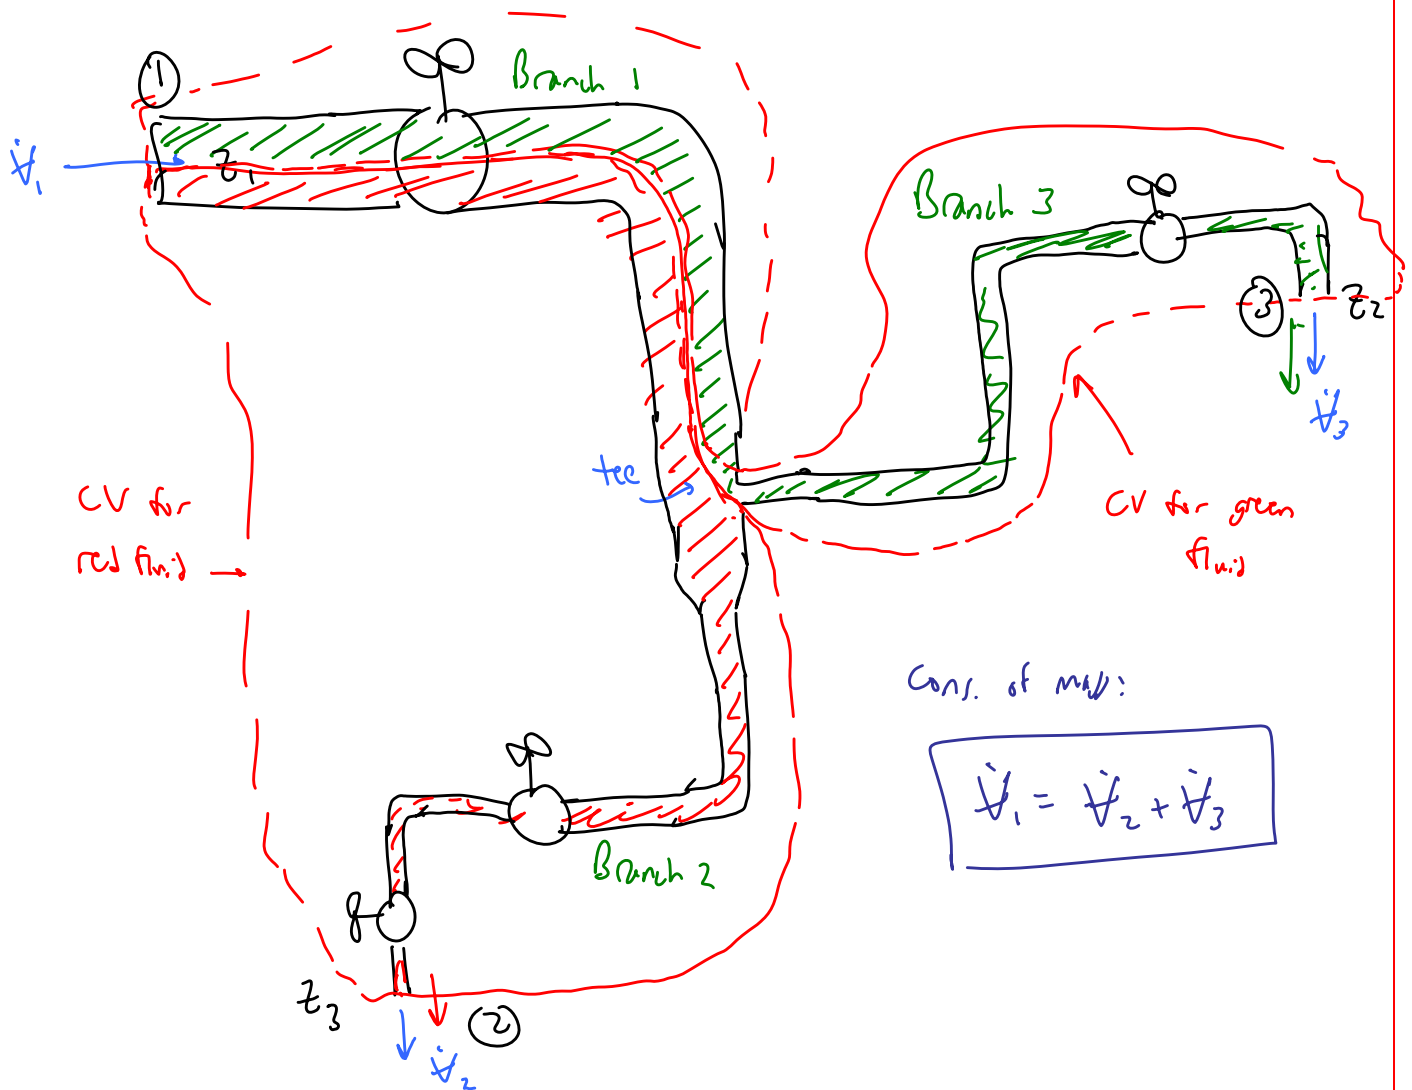 ①
Branch 1
V̇₁
z₁
Branch 3
③
z₂
V̇₃
tee
CV for
red fluid
CV for green
fluid
Cons. of mass:
V̇₁ = V̇₂ + V̇₃
Branch 2
z₃
②
V̇₂